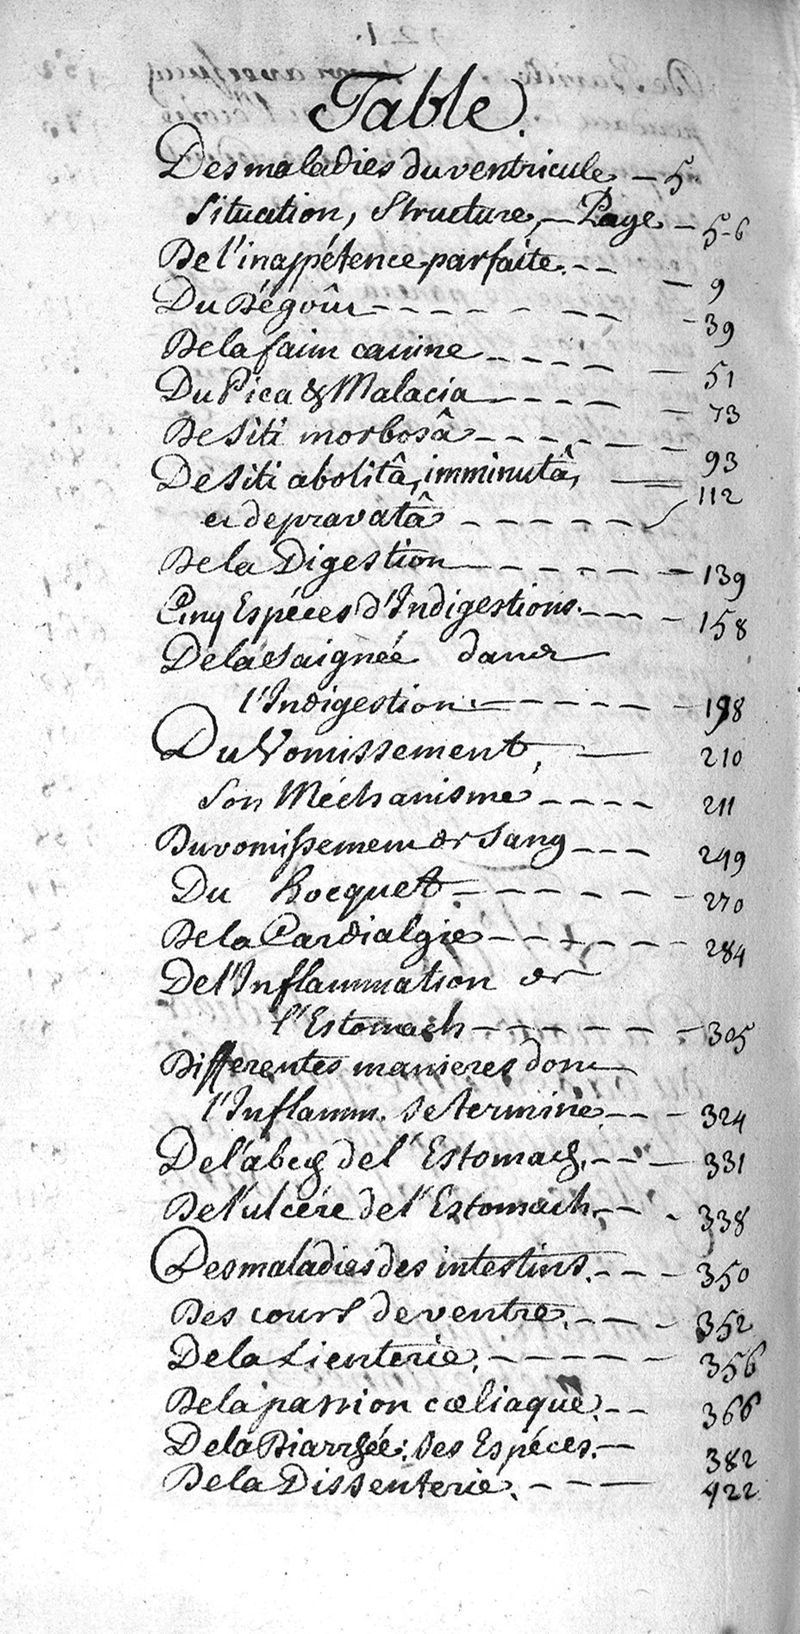 Table.
Des maladies du ventricule — 5
Situation, Structure, — Page — 5-6
De l'inappétence parfaite. — — — 9
Du Dégoût - - - - - - - 39
De la faim canine - - - - — 51
Du Pica & Malacia - - - - — 73
De Siti morbosâ - - - - - — 93
De Siti abolitâ, imminutâ, — 112
et depravatâ - - - - - -
De la Digestion - - - - - — 139
Cinq Espéces d'Indigestions. - - - — 158
De la Saignée dans
l'Indigestion. - - - - - — 198
Du Vomissement, — 210
Son Méchanisme - - - - 211
Du vomissement de Sang - - - 249
Du Hocquet. - - - - - - 270
De la Cardialgie - - - - - - 284
De l'Inflammation de
l'Estomach - - - - - - - 305
Differentes manieres dont
l'Inflamm. se termine. - - - 324
De l'abcès de l'Estomach. - - — 331
De l'ulcére de l'Estomach. - - - 338
Des maladies des intestins. - - - 350
Des cours de ventre. - - - - 352
De la Lienterie. - - - - - - 356
De la passion cœliaque. - - 366
De la Diarrhée: ses Espéces. - 382
De la Dissenterie. - - — 422